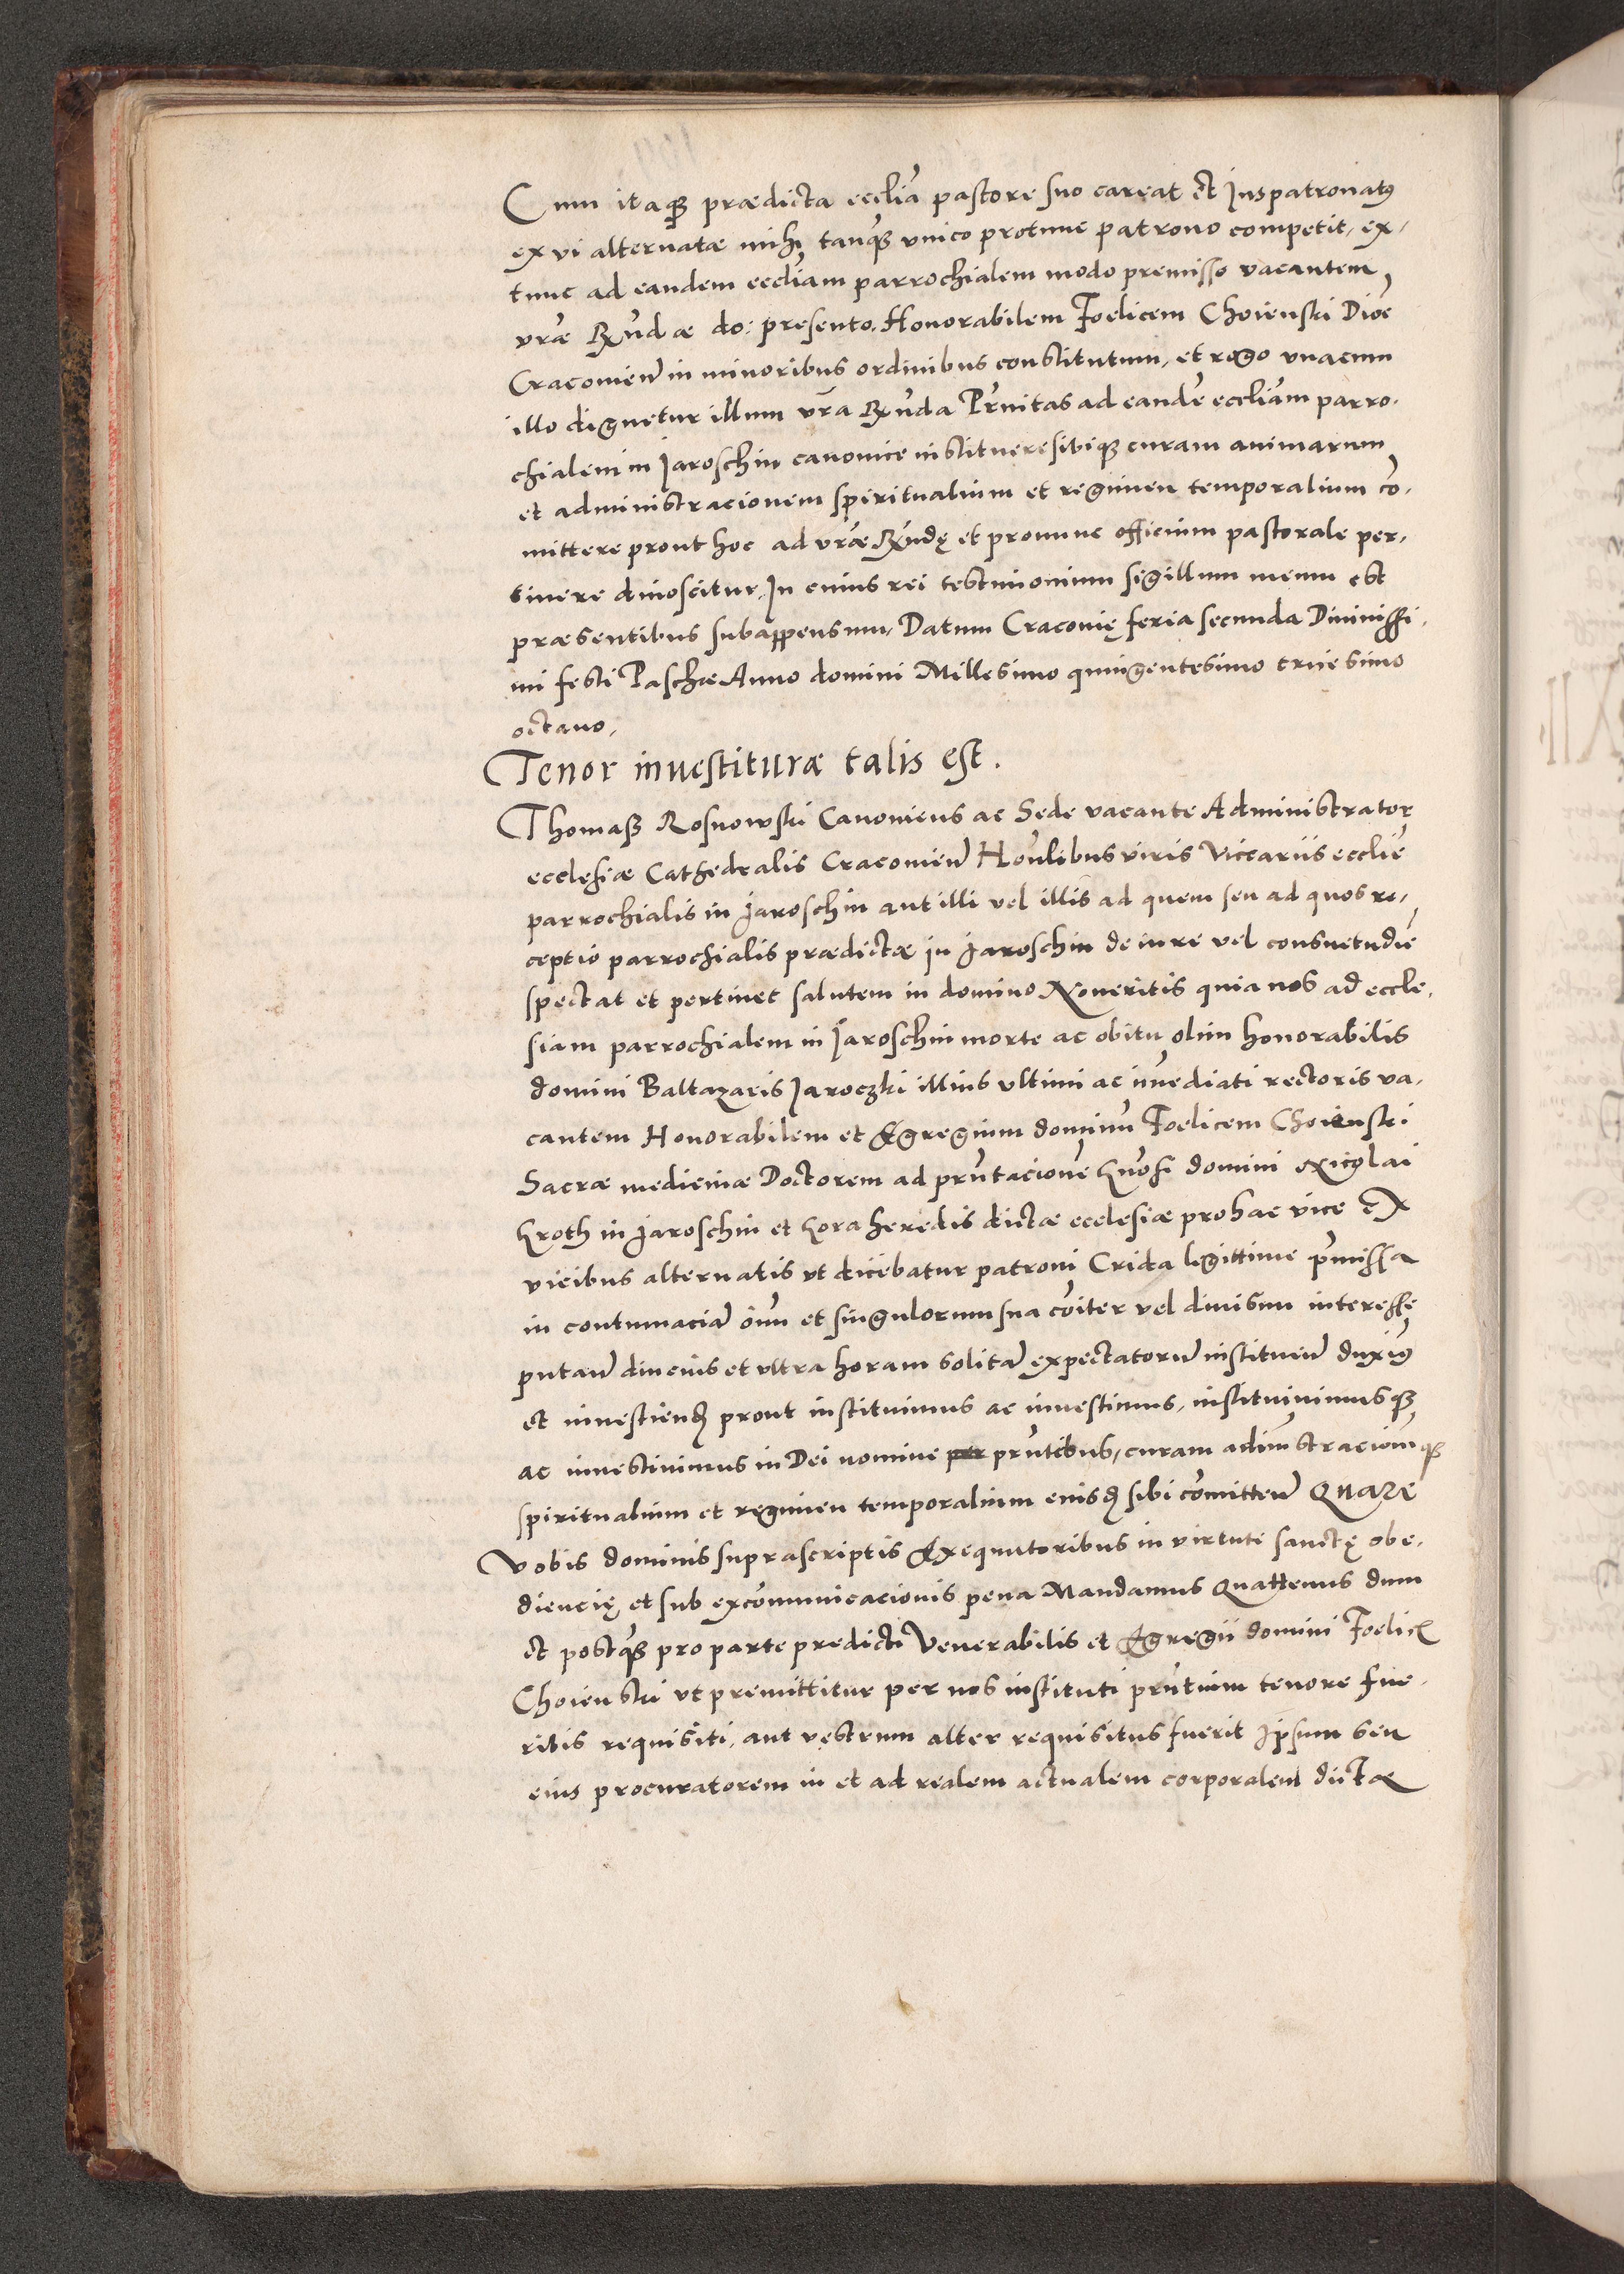 Cum itaq₃ prædicta ecclīa pastore suo careat et Juspatronatꝰ
ex vi alternatæ mihi tanq̄₃ vnico protunc patrono competit, ex-
tunc ad eandem eccliam parrochialem modo premisso vacantem,
vr̄æ Rn̄dæ do: presento. Honorabilem Foelicem Choienski Dioc̄
Cracouien̄ in minoribus ordinibus constitutum, et rogo vnacum
illo dignetur illum vr̄a Rn̄da Pr̄nitas ad eandē eccliām parro-
chialem in Jaroschin canonice instituere sibiq₃ curam animarum
et administracionem spiritualium et regimen temporalium cō-
mittere prout hoc ad vr̄æ Rn̄dę et pronunc officium pastorale per-
tinere dinoscitur. In cuius rei testimonium sigillum meum est
præsentibus subappensum. Datum Cracouię feria secunda Diuinissi-
mi festi Paschæ Anno domini Millesimo quingentesimo tricesimo
octauo.
Tenor inuestituræ talis est.
Thomaß Rosnowski Canonicus ac Sede vacante Administrator
ecclesiæ Cathedralis Cracouien̄ Hon̄libus viris Vicariis ecclīe
parrochialis in Jaroschin aut illi vel illis ad quem seu ad quos re-
ceptio parrochialis prædictæ in Jaroschin de iure vel consuetudīe
spectat et pertinet salutem in domino Noueritis quia nos ad eccle-
siam parrochialem in Jaroschin morte ac obitu olim honorabilis
domini Baltazaris Jaroczki illius vltimi ac īmediati rectoris va-
cantem Honorabilem et Egregium dominū Foelicem Choienski
Sacræ medicinæ Doctorem ad prn̄tacionē Gn̄osi domini Nicolai
Kroth in Jaroschin et Gora heredis dictæ ecclesiæ pro hac vice ex
vicibus alternatis vt dicebatur patroni Crida legittime p̄missa
in contumaciā oīm et singulorum sua cōiter vel diuisim interesse
putan̄ diucius et vltra horam solitā expectatorū instituen̄ duximꝰ
et inuestiend prout instituimus ac inuestimus, instituiuimusq₃
ac inuestiuimus in Dei nomine per prn̄tibus, curam adimstracionēq₃
spiritualium et regimen temporalium eiusd sibi cōmitten̄ Quare
Vobis dominis suprascriptis Exequutoribus in virtute sanctę obe-
diencię et sub excōmunicacionis pena Mandamus Quattenus dum
et postq̄₃ pro parte predicti Venerabilis et Egregii domini Foelicꝭ
Choienski vt premittitur per nos instituti prn̄tium tenore fue-
ritis requisiti, aut vestrum alter requisitus fuerit ipsum seu
eius procuratorem in et ad realem actualem corporalem dictæ